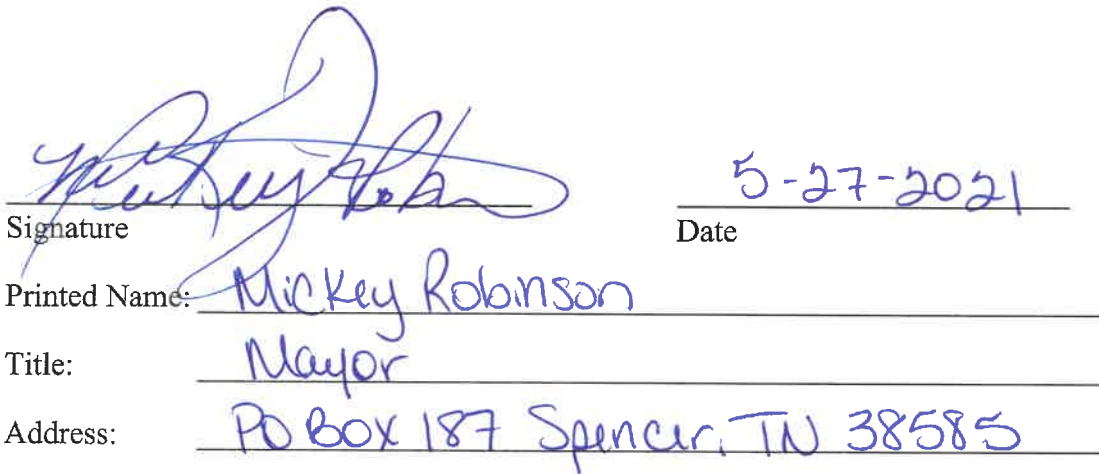 Mickey Robinson 5-27-2021
Signature Date
Printed Name: Mickey Robinson
Title: Mayor
Address: PO BOX 187 Spencer, TN 38585